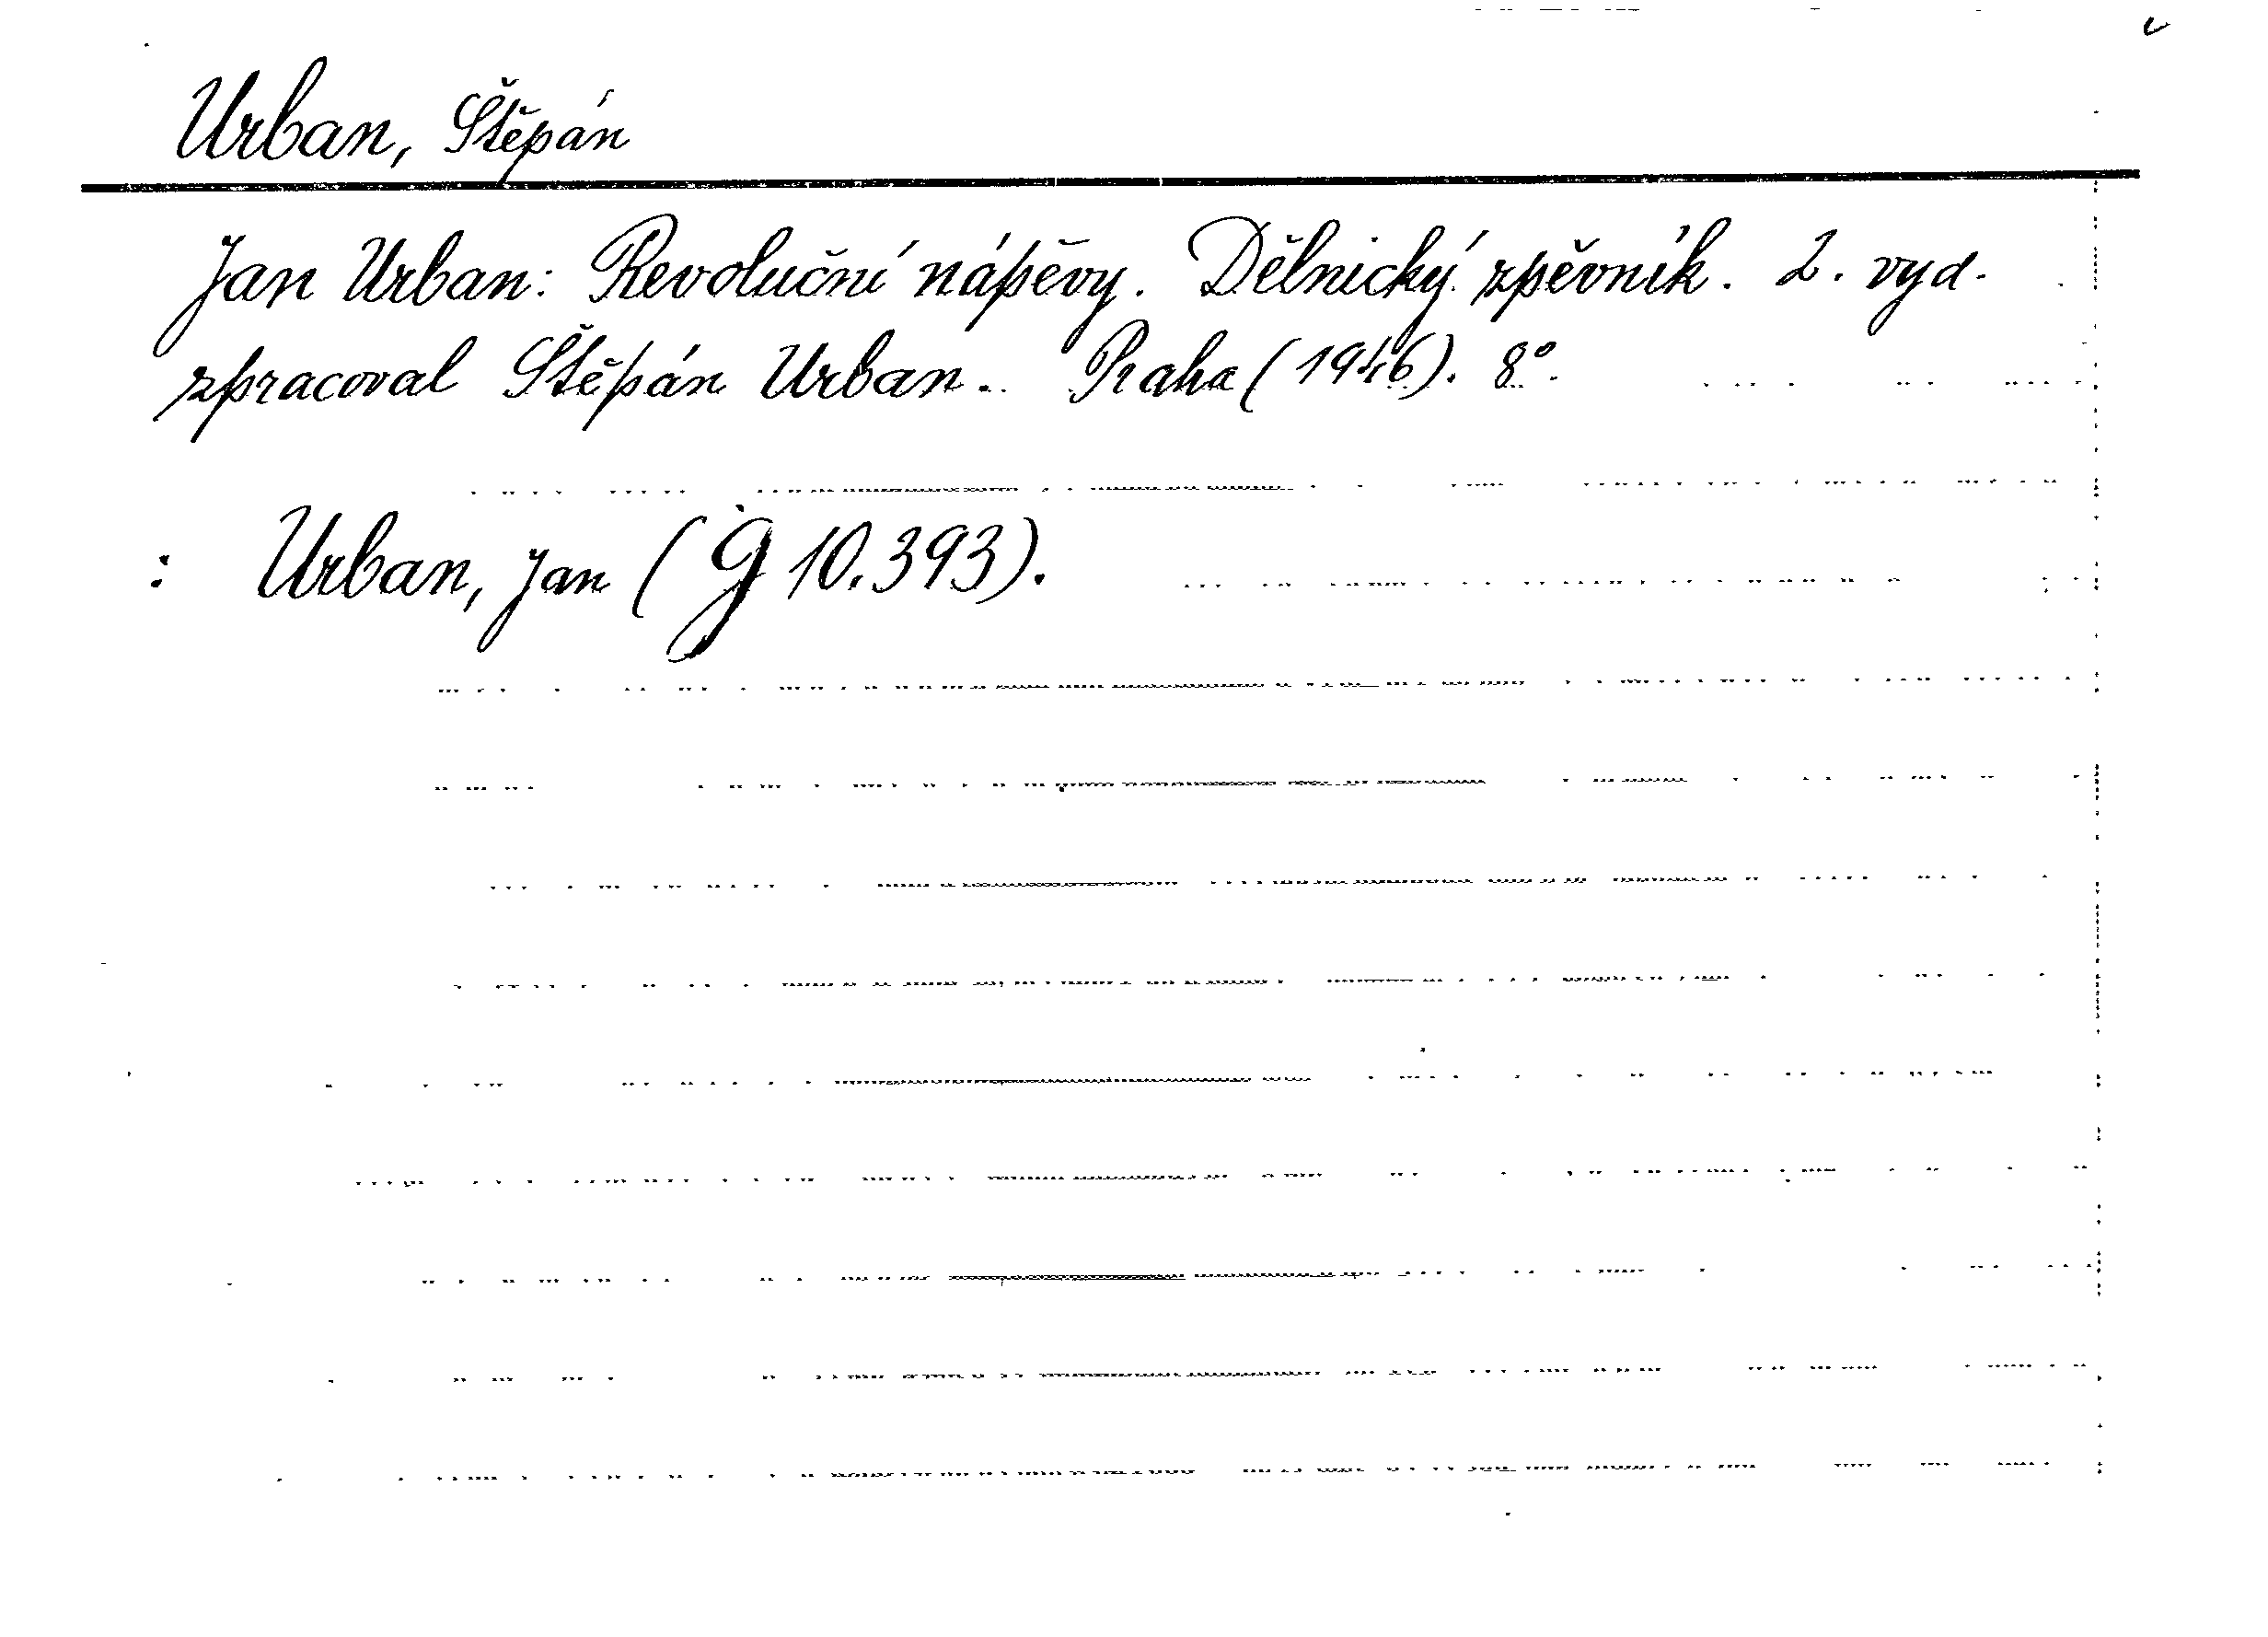 Urban, Štěpán
Jan Urban: Revoluční nápěvy. Dělnický zpěvník. 2. vyd.
zpracoval Štěpán Urban. Praha (1946). 8°.
: Urban, Jan (G 10.393).